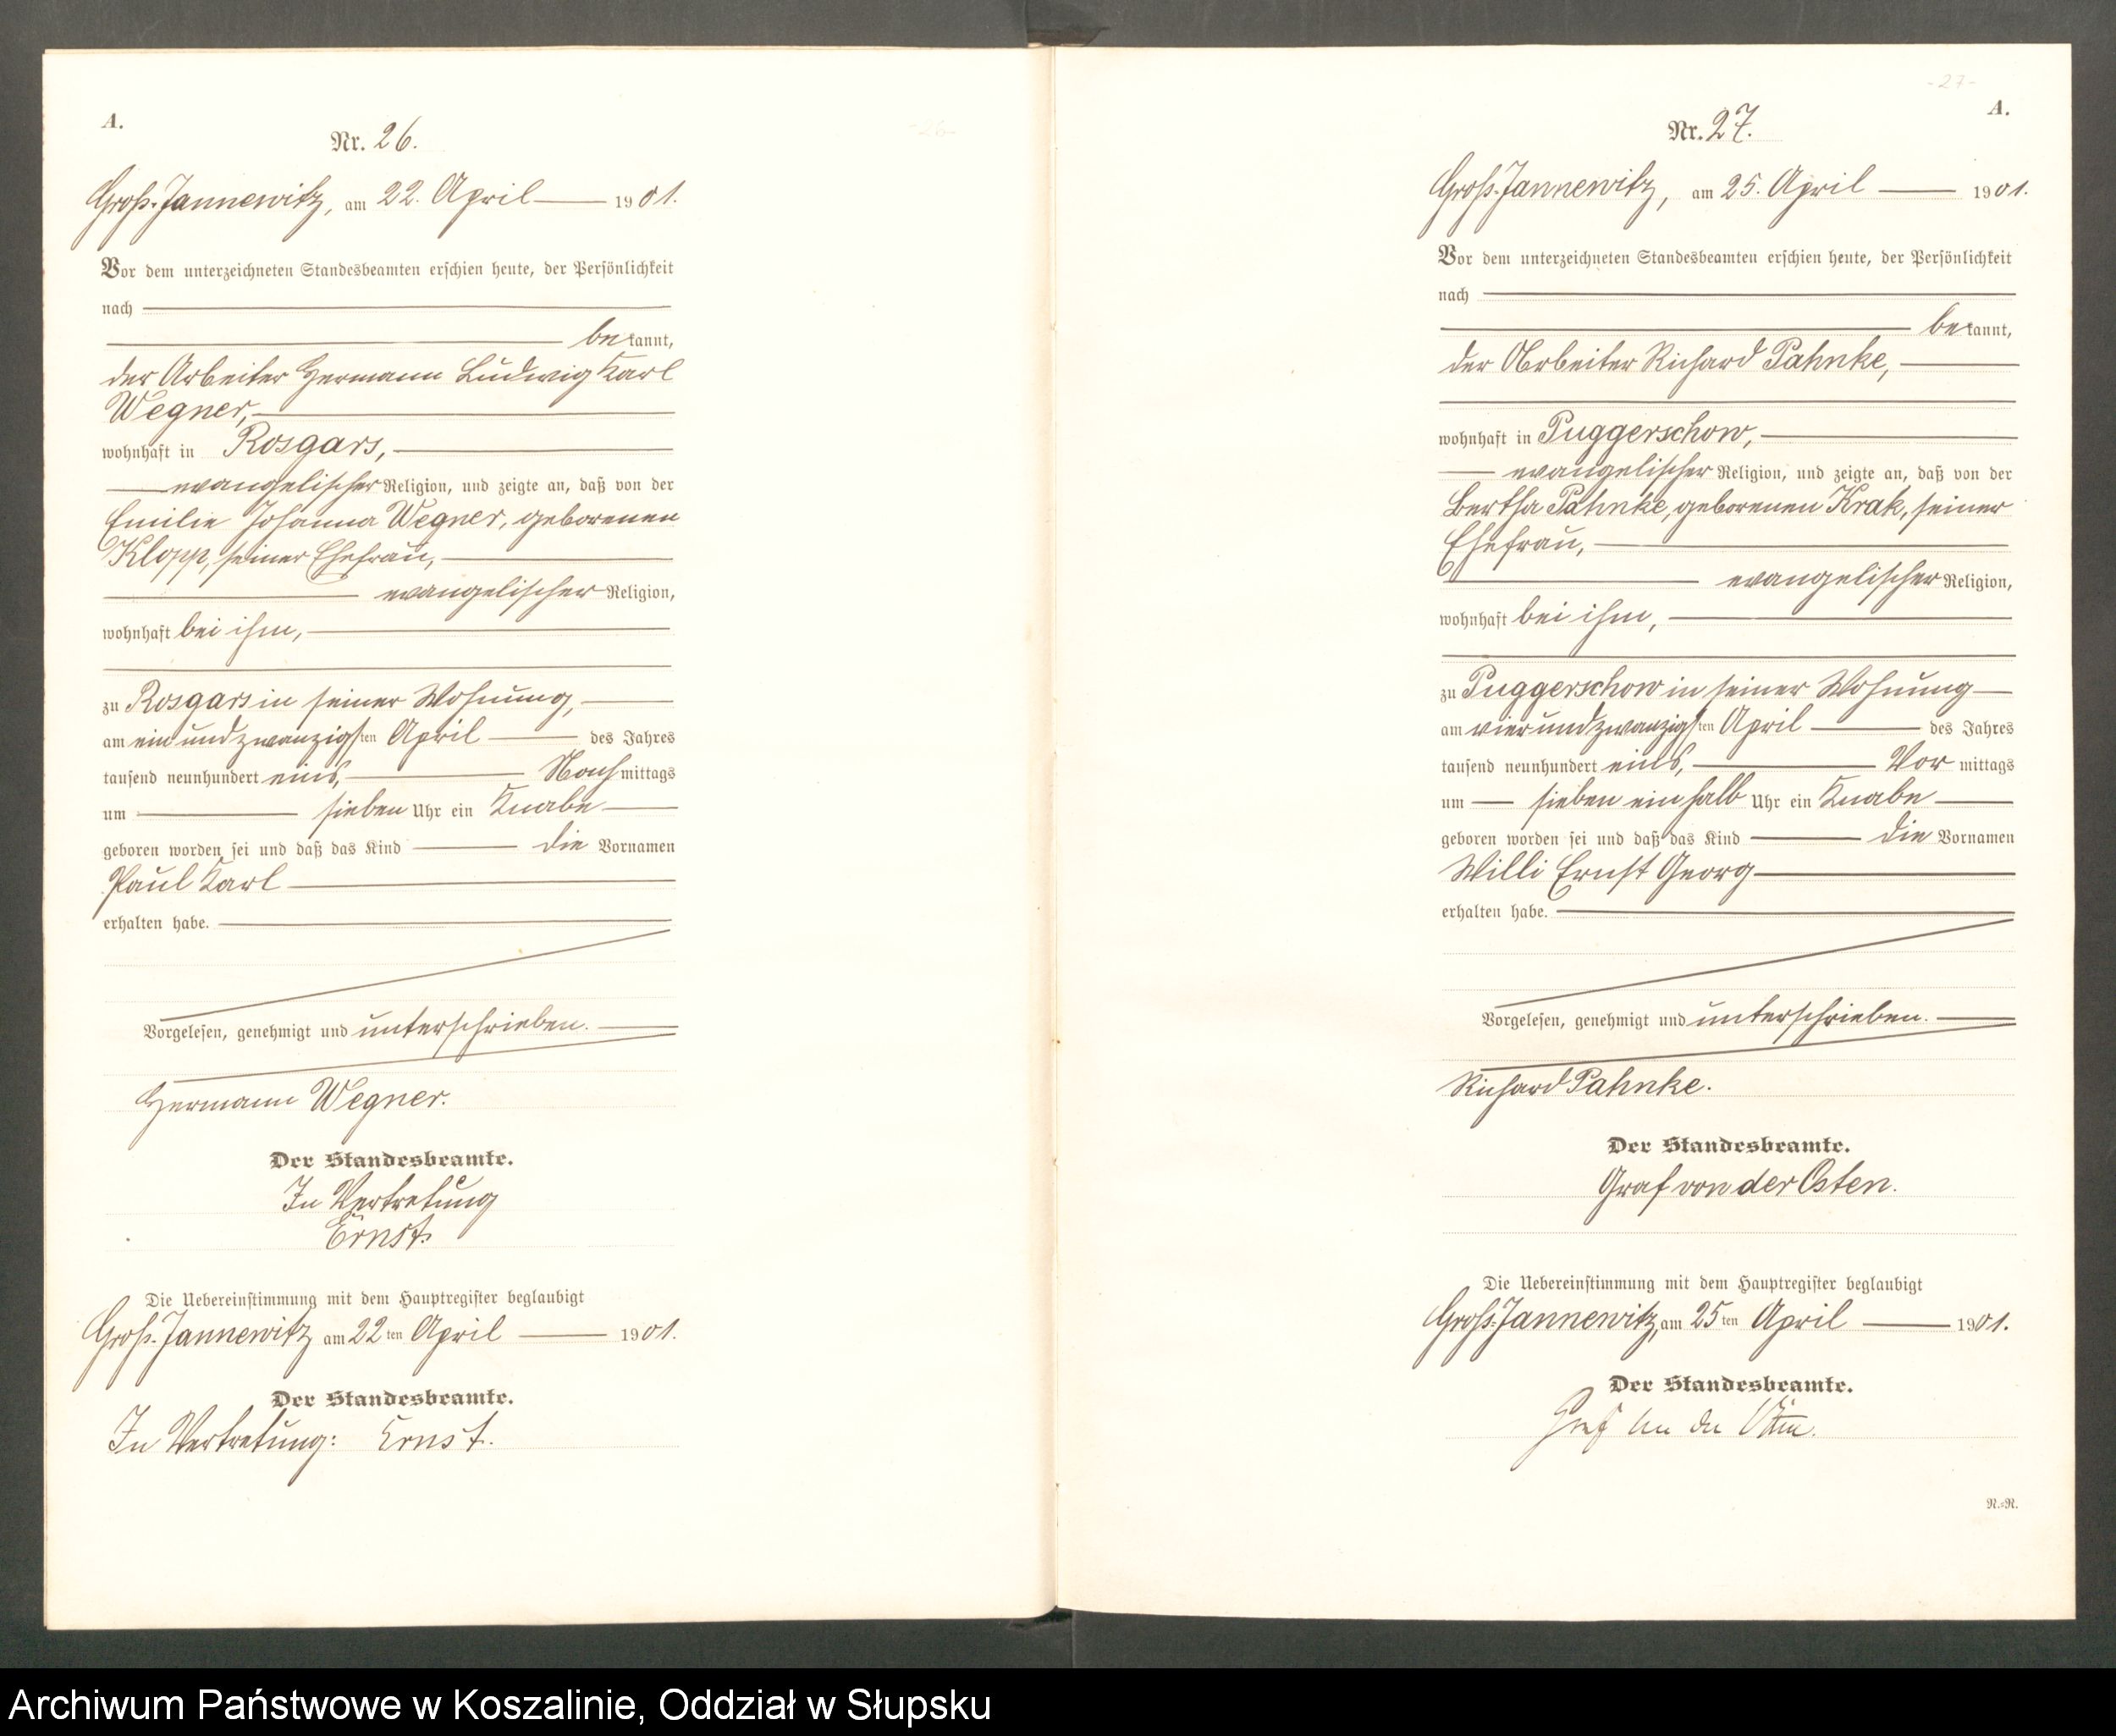 A.
Nr. 26.
Groß-Jannewitz, am 22. April 1901.
Vor dem unterzeichneten Standesbeamten erschien heute, der Persönlichkeit
nach
bekannt,
der Arbeiter Hermann Ludwig Karl
Wegner,
wohnhaft in Rosgars,
evangelischer Religion, und zeigte an, daß von der
Emilie Johanna Wegner, geborenen
Klopp, seiner Ehefrau,
evangelischer Religion,
wohnhaft bei ihm,
zu Rosgars in seiner Wohnung,
am ein und zwanzigsten April des Jahres
tausend neunhundert eins, Nachmittags
um sieben Uhr ein Knabe
geboren worden sei und daß das Kind die Vornamen
Paul Karl
erhalten habe.
Vorgelesen, genehmigt und unterschrieben.
Hermann Wegner.
Der Standesbeamte.
In Vertretung
Ernst.
Die Uebereinstimmung mit dem Hauptregister beglaubigt
Groß-Jannewitz am 22ten April 1901.
Der Standesbeamte.
In Vertretung: Ernst.
-26-
-27-
A.
Nr. 27.
Groß-Jannewitz, am 25. April 1901.
Vor dem unterzeichneten Standesbeamten erschien heute, der Persönlichkeit
nach
bekannt,
der Arbeiter Richard Pahnke,
wohnhaft in Puggerschow,
evangelischer Religion, und zeigte an, daß von der
Bertha Pahnke, geborenen Krak, seiner
Ehefrau,
evangelischer Religion,
wohnhaft bei ihm,
zu Puggerschow in seiner Wohnung
am vier und zwanzigsten April des Jahres
tausend neunhundert eins, Vormittags
um sieben ein halb Uhr ein Knabe
geboren worden sei und daß das Kind die Vornamen
Willi Ernst Georg
erhalten habe.
Vorgelesen, genehmigt und unterschrieben.
Richard Pahnke.
Der Standesbeamte.
Graf von der Osten.
Die Uebereinstimmung mit dem Hauptregister beglaubigt
Groß-Jannewitz, am 25ten April 1901.
Der Standesbeamte.
Graf von der Osten.
N.-N.
Archiwum Państwowe w Koszalinie, Oddział w Słupsku